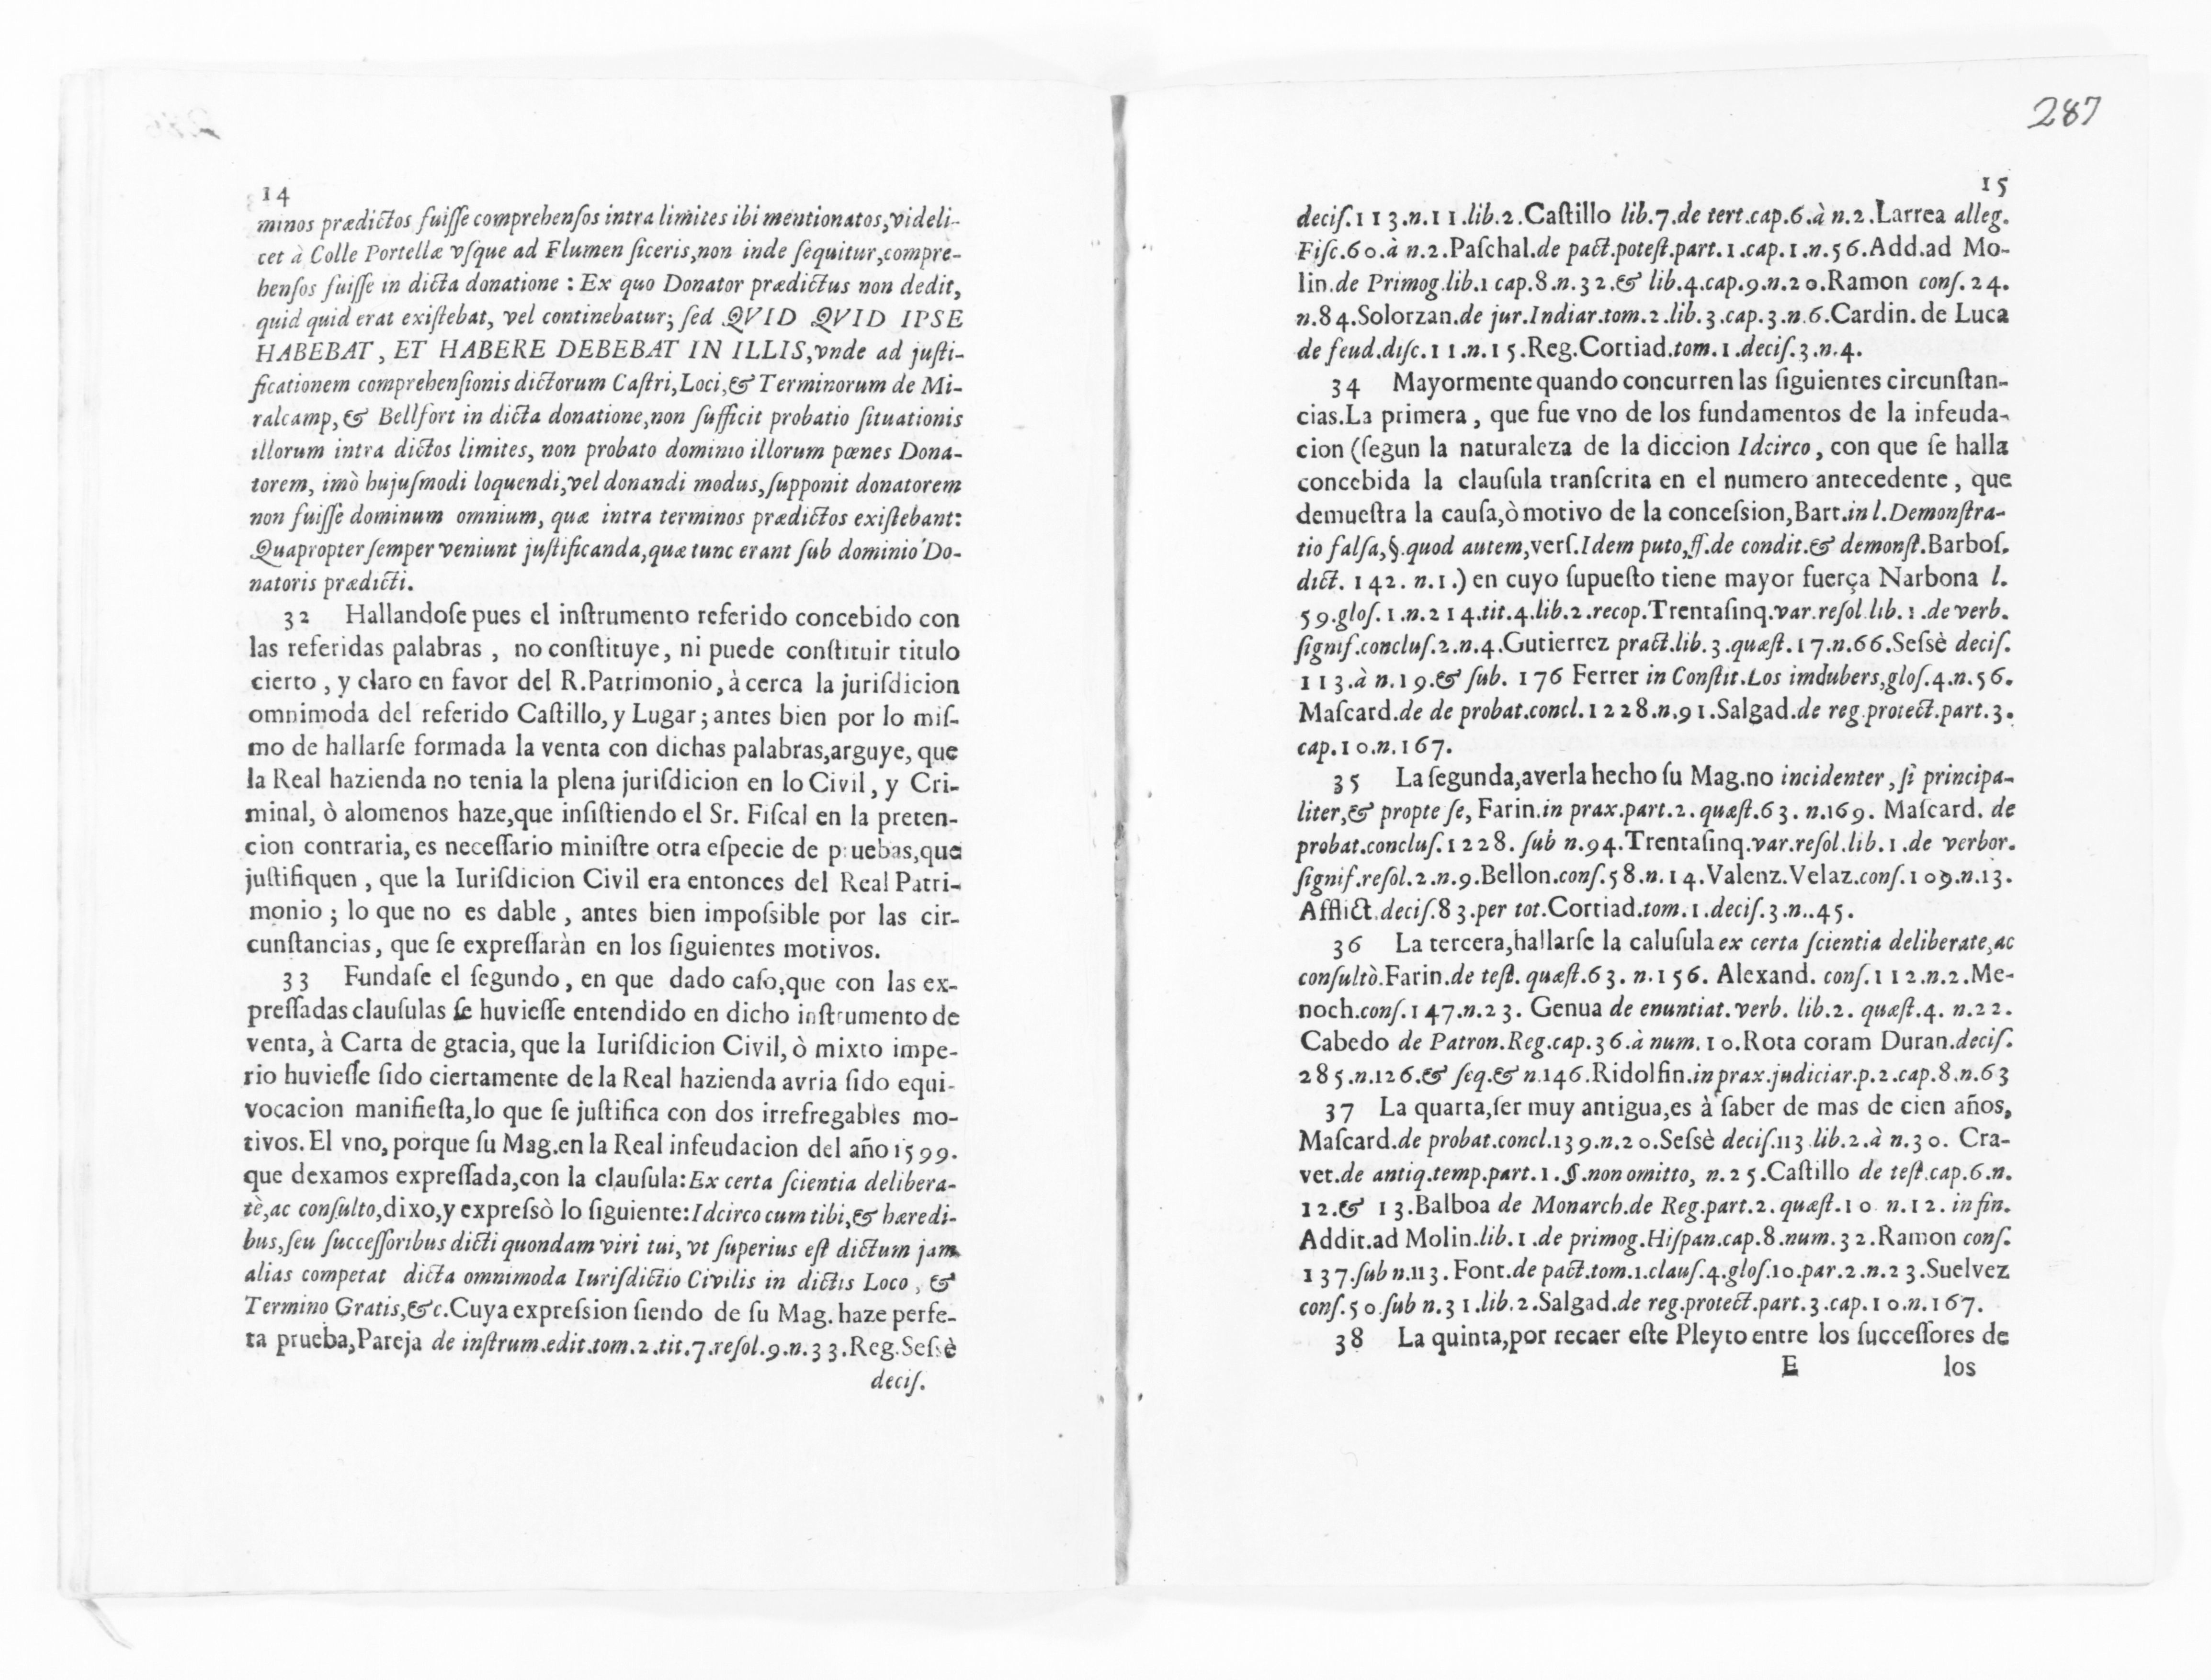 14
minos prædictos fuiſſe comprehenſos intra limites ibi mentionatos,videli-
cet à Colle Portellæ vſque ad Flumen ſiceris,non inde ſequitur,compre-
henſos fuiſſe in dicta donatione : Ex quo Donator prædictus non dedit,
quid quid erat exiſtebat, vel continebatur; ſed QVID QVID IPSE
HABEBAT, ET HABERE DEBEBAT IN ILLIS,vnde ad juſti-
ficationem comprehenſionis dictorum Caſtri,Loci,& Terminorum de Mi-
ralcamp,& Bellfort in dicta donatione,non ſufficit probatio ſituationis
illorum intra dictos limites, non probato dominio illorum pœnes Dona-
torem, imò hujuſmodi loquendi,vel donandi modus,ſupponit donatorem
non fuiſſe dominum omnium, quæ intra terminos prædictos exiſtebant:
Quapropter ſemper veniunt juſtificanda,quæ tunc erant ſub dominio Do-
natoris prædicti.
32 Hallandoſe pues el inſtrumento referido concebido con
las referidas palabras , no conſtituye, ni puede conſtituir titulo
cierto , y claro en favor del R.Patrimonio, à cerca la juriſdicion
omnimoda del referido Caſtillo, y Lugar; antes bien por lo miſ-
mo de hallarſe formada la venta con dichas palabras,arguye, que
la Real hazienda no tenia la plena juriſdicion en lo Civil, y Cri-
minal, ò alomenos haze,que inſiſtiendo el Sr. Fiſcal en la preten-
cion contraria, es neceſſario miniſtre otra eſpecie de pruebas,que
juſtifiquen , que la Iuriſdicion Civil era entonces del Real Patri-
monio ; lo que no es dable , antes bien impoſsible por las cir-
cunſtancias, que ſe expreſſaràn en los ſiguientes motivos.
33 Fundaſe el ſegundo, en que dado caſo,que con las ex-
preſſadas clauſulas ſe huvieſſe entendido en dicho inſtrumento de
venta, à Carta de gtacia, que la Iuriſdicion Civil, ò mixto impe-
rio huvieſſe ſido ciertamente de la Real hazienda avria ſido equi-
vocacion manifieſta,lo que ſe juſtifica con dos irrefregables mo-
tivos. El vno, porque ſu Mag.en la Real infeudacion del año 1599.
que dexamos expreſſada,con la clauſula: Ex certa ſcientia delibera-
tè,ac conſulto,dixo,y expreſsò lo ſiguiente: Idcirco cum tibi,& hæredi-
bus,ſeu ſucceſſoribus dicti quondam viri tui, vt ſuperius eſt dictum jam
alias competat dicta omnimoda Iuriſdictio Civilis in dictis Loco , &
Termino Gratis,&c.Cuya expreſsion ſiendo de ſu Mag. haze perfe-
ta prueba,Pareja de inſtrum.edit.tom.2.tit.7.reſol.9.n.33.Reg.Seſsè
deciſ.
287
15
deciſ.113.n.11.lib.2.Caſtillo lib.7.de tert.cap.6.à n.2.Larrea alleg.
Fiſc.60.à n.2.Paſchal.de pact.poteſt.part.1.cap.1.n.56.Add.ad Mo-
lin.de Primog.lib.1 cap.8.n.32.& lib.4.cap.9.n.20.Ramon conſ.24.
n.84.Solorzan.de jur.Indiar.tom.2.lib.3.cap.3.n.6.Cardin. de Luca
de feud.diſc.11.n.15.Reg.Cortiad.tom.1.deciſ.3.n.4.
34 Mayormente quando concurren las ſiguientes circunſtan-
cias.La primera , que fue vno de los fundamentos de la infeuda-
cion (ſegun la naturaleza de la diccion Idcirco, con que ſe halla
concebida la clauſula tranſcrita en el numero antecedente , que
demueſtra la cauſa,ò motivo de la conceſsion,Bart.in l.Demonſtra-
tio falſa,§.quod autem,verſ.Idem puto,ff.de condit.& demonſt.Barboſ.
dict. 142. n.1.) en cuyo ſupueſto tiene mayor fuerça Narbona l.
59.gloſ.1.n.214.tit.4.lib.2.recop.Trentaſinq.var.reſol.lib.1.de verb.
ſignif.concluſ.2.n.4.Gutierrez pract.lib.3.quæſt.17.n.66.Seſsè deciſ.
113.à n.19.& ſub. 176 Ferrer in Conſtit.Los imdubers,gloſ.4.n.56.
Maſcard.de de probat.concl.1228.n.91.Salgad.de reg.protect.part.3.
cap.10.n.167.
35 La ſegunda,averla hecho ſu Mag.no incidenter, ſi principa-
liter,& propte ſe, Farin.in prax.part.2.quæſt.63. n.169. Maſcard. de
probat.concluſ.1228. ſub n.94.Trentaſinq.var.reſol.lib.1.de verbor.
ſignif.reſol.2.n.9.Bellon.conſ.58.n.14.Valenz.Velaz.conſ.109.n.13.
Afflict.deciſ.83.per tot.Cortiad.tom.1.deciſ.3.n..45.
36 La tercera,hallarſe la caluſula ex certa ſcientia deliberate,ac
conſultò.Farin.de teſt.quæſt.63. n.156. Alexand. conſ.112.n.2.Me-
noch.conſ.147.n.23. Genua de enuntiat.verb. lib.2. quæſt.4. n.22.
Cabedo de Patron.Reg.cap.36.à num.10.Rota coram Duran.deciſ.
285.n.126.& ſeq.& n.146.Ridolfin.in prax.judiciar.p.2.cap.8.n.63
37 La quarta,ſer muy antigua,es à ſaber de mas de cien años,
Maſcard.de probat.concl.139.n.20.Seſsè deciſ.113.lib.2.à n.30. Cra-
vet.de antiq.temp.part.1.§.non omitto, n.25.Caſtillo de teſt.cap.6.n.
12.& 13.Balboa de Monarch.de Reg.part.2.quæſt.10 n.12. in fin.
Addit.ad Molin.lib.1.de primog.Hiſpan.cap.8.num.32.Ramon conſ.
137.ſub n.113. Font.de pact.tom.1.clauſ.4.gloſ.10.par.2.n.23.Suelvez
conſ.50.ſub n.31.lib.2.Salgad.de reg.protect.part.3.cap.10.n.167.
38 La quinta,por recaer eſte Pleyto entre los ſucceſſores de
E los